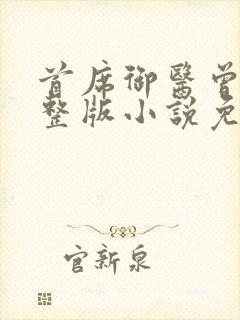 首席御醫曾
整版小說免
官新泉